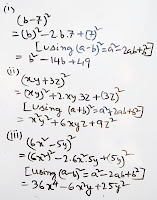 (i)
(b-7)²
= (b)² - 2b.7 + (7)²
[using (a-b)² = a² - 2ab + b²]
= b² - 14b + 49
(ii)
(xy + 3z)²
= (xy)² + 2.xy.3z + (3z)²
[using (a+b)² = a² + 2ab + b²]
= x²y² + 6xyz + 9z²
(iii)
(6x² - 5y)²
= (6x²)² - 2.6x².5y + (5y)²
[using (a-b)² = a² - 2ab + b²]
= 36x⁴ - 60x²y + 25y²